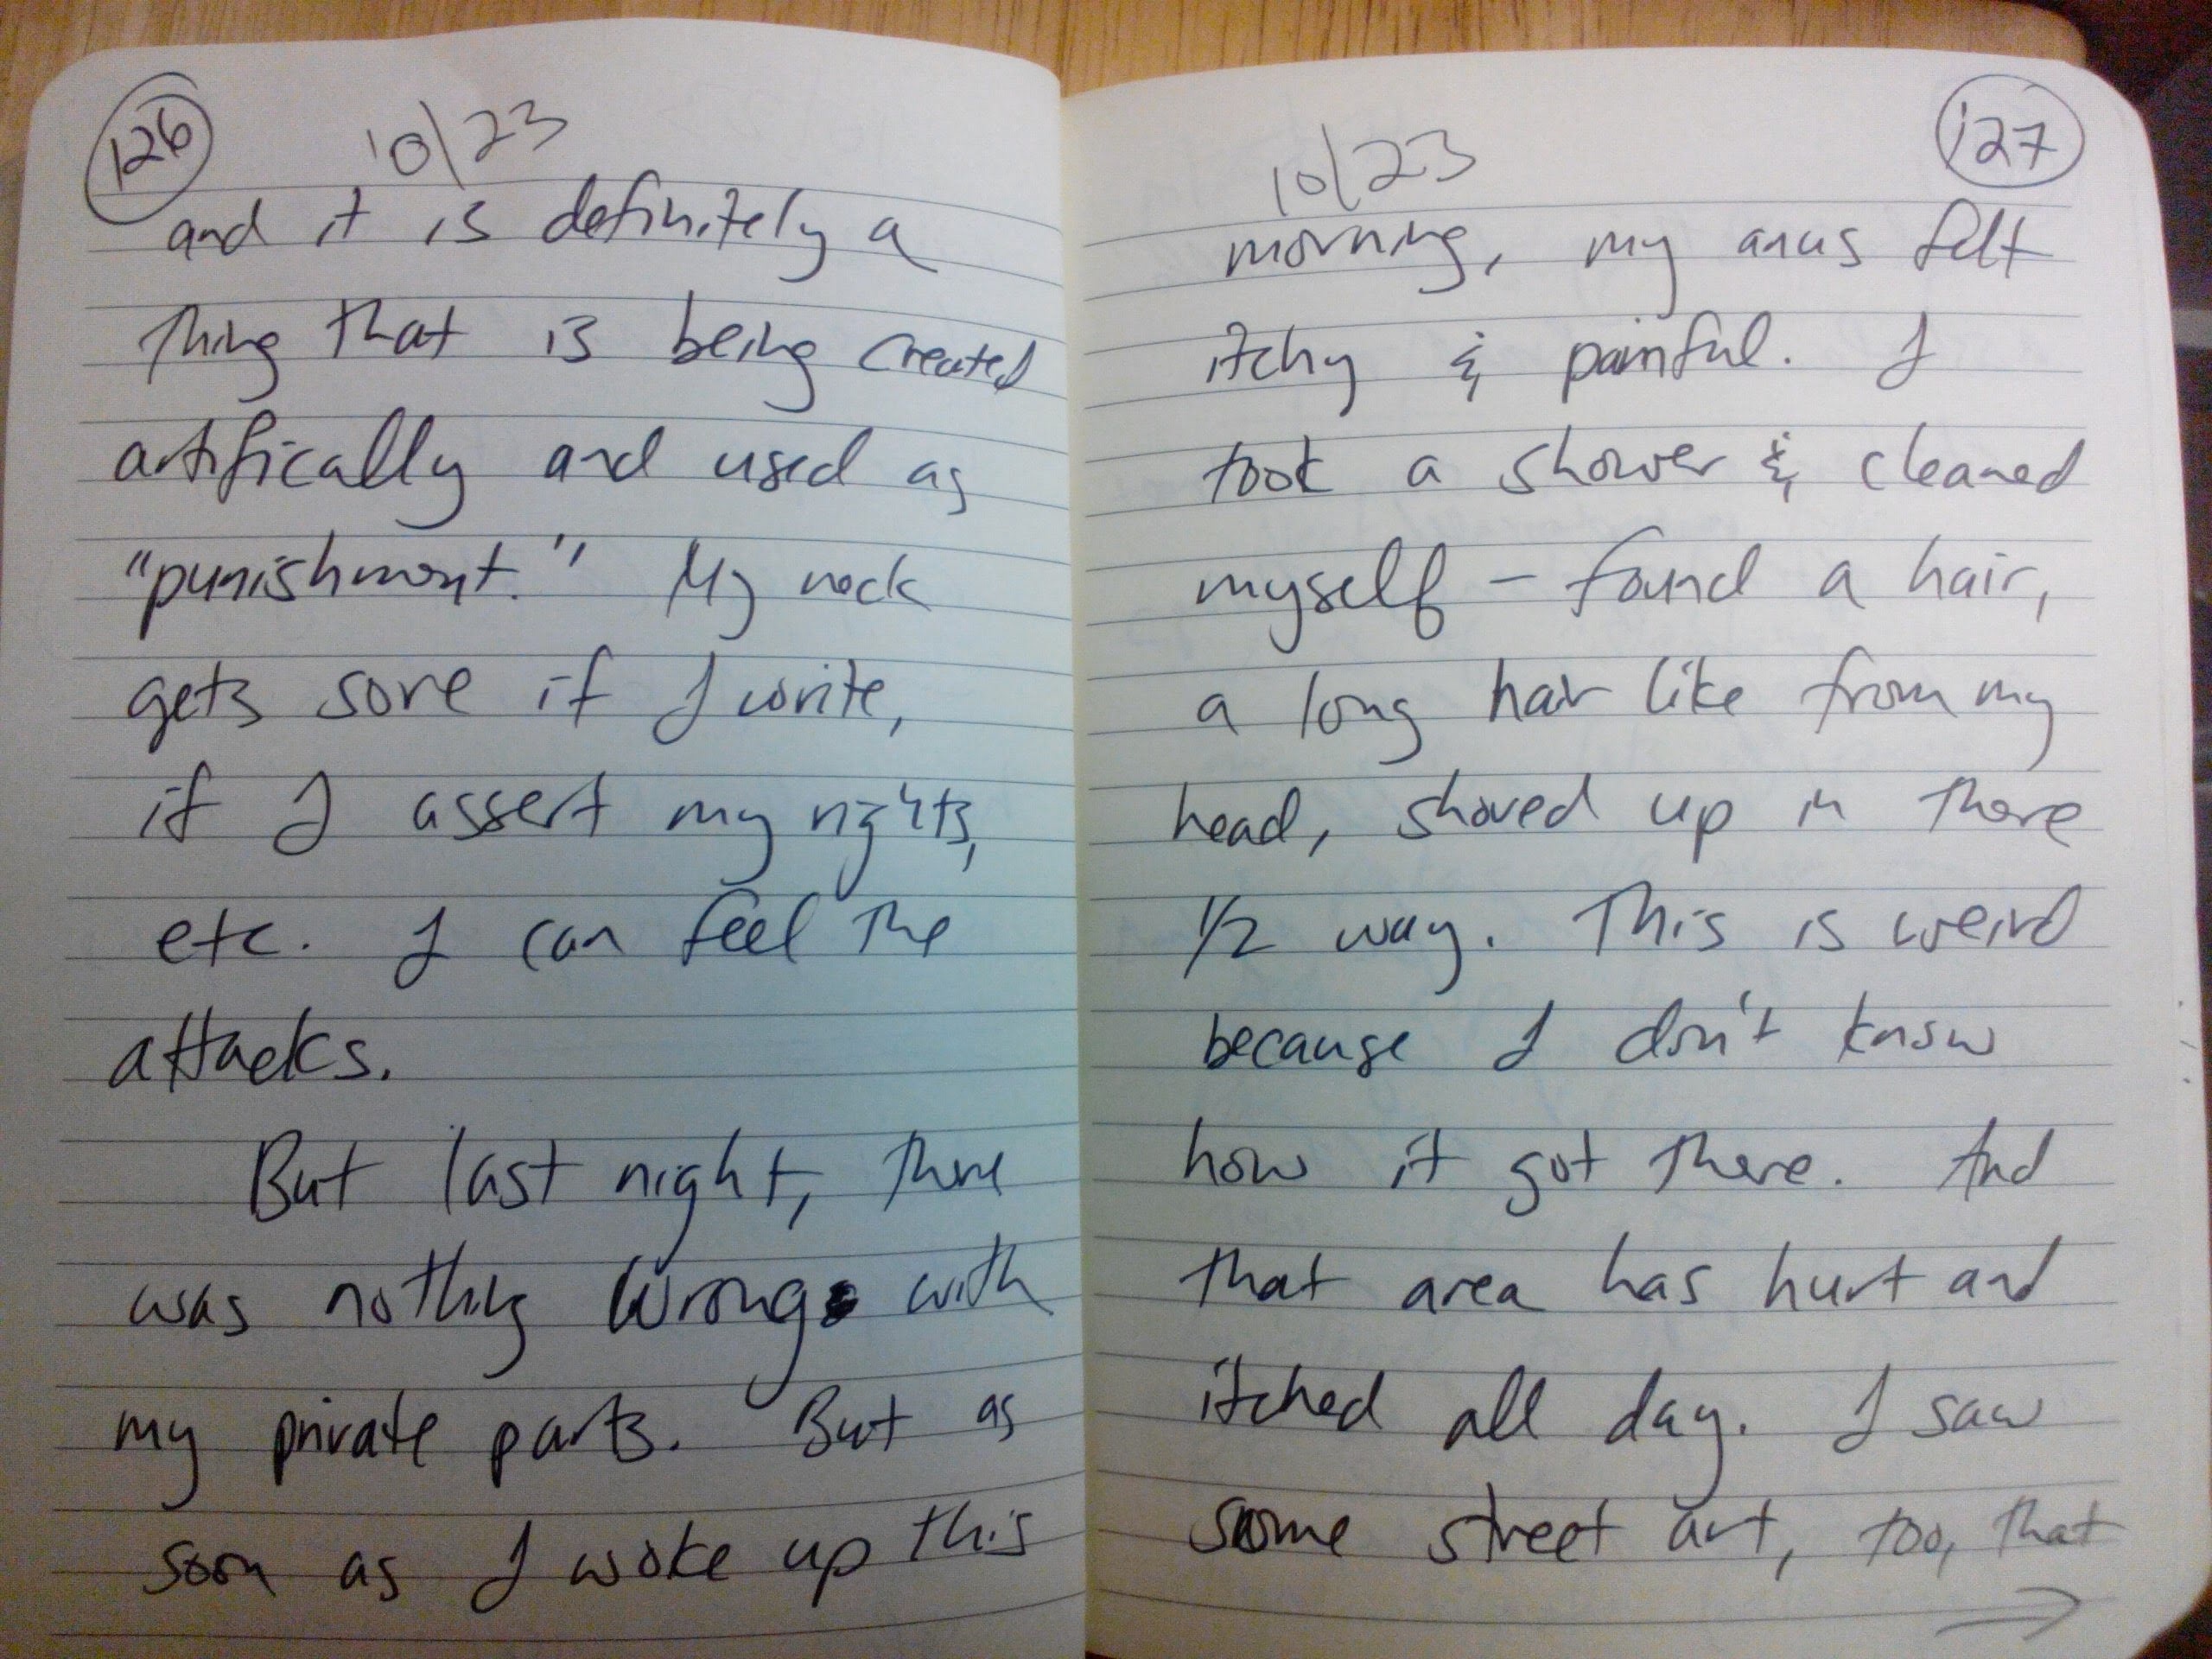 126
10/23
and it is definitely a
thing that is being created
artifically and used as
"punishment." My neck
gets sore if I write,
if I assert my rights,
etc. I can feel the
attacks.
But last night, there
was nothing wrong with
my private parts. But as
soon as I woke up this
127
10/23
morning, my anus felt
itchy & painful. I
took a shower & cleaned
myself - found a hair,
a long hair like from my
head, shoved up in there
1/2 way. This is weird
because I don't know
how it got there. And
that area has hurt and
itched all day. I saw
some street art, too, that
→